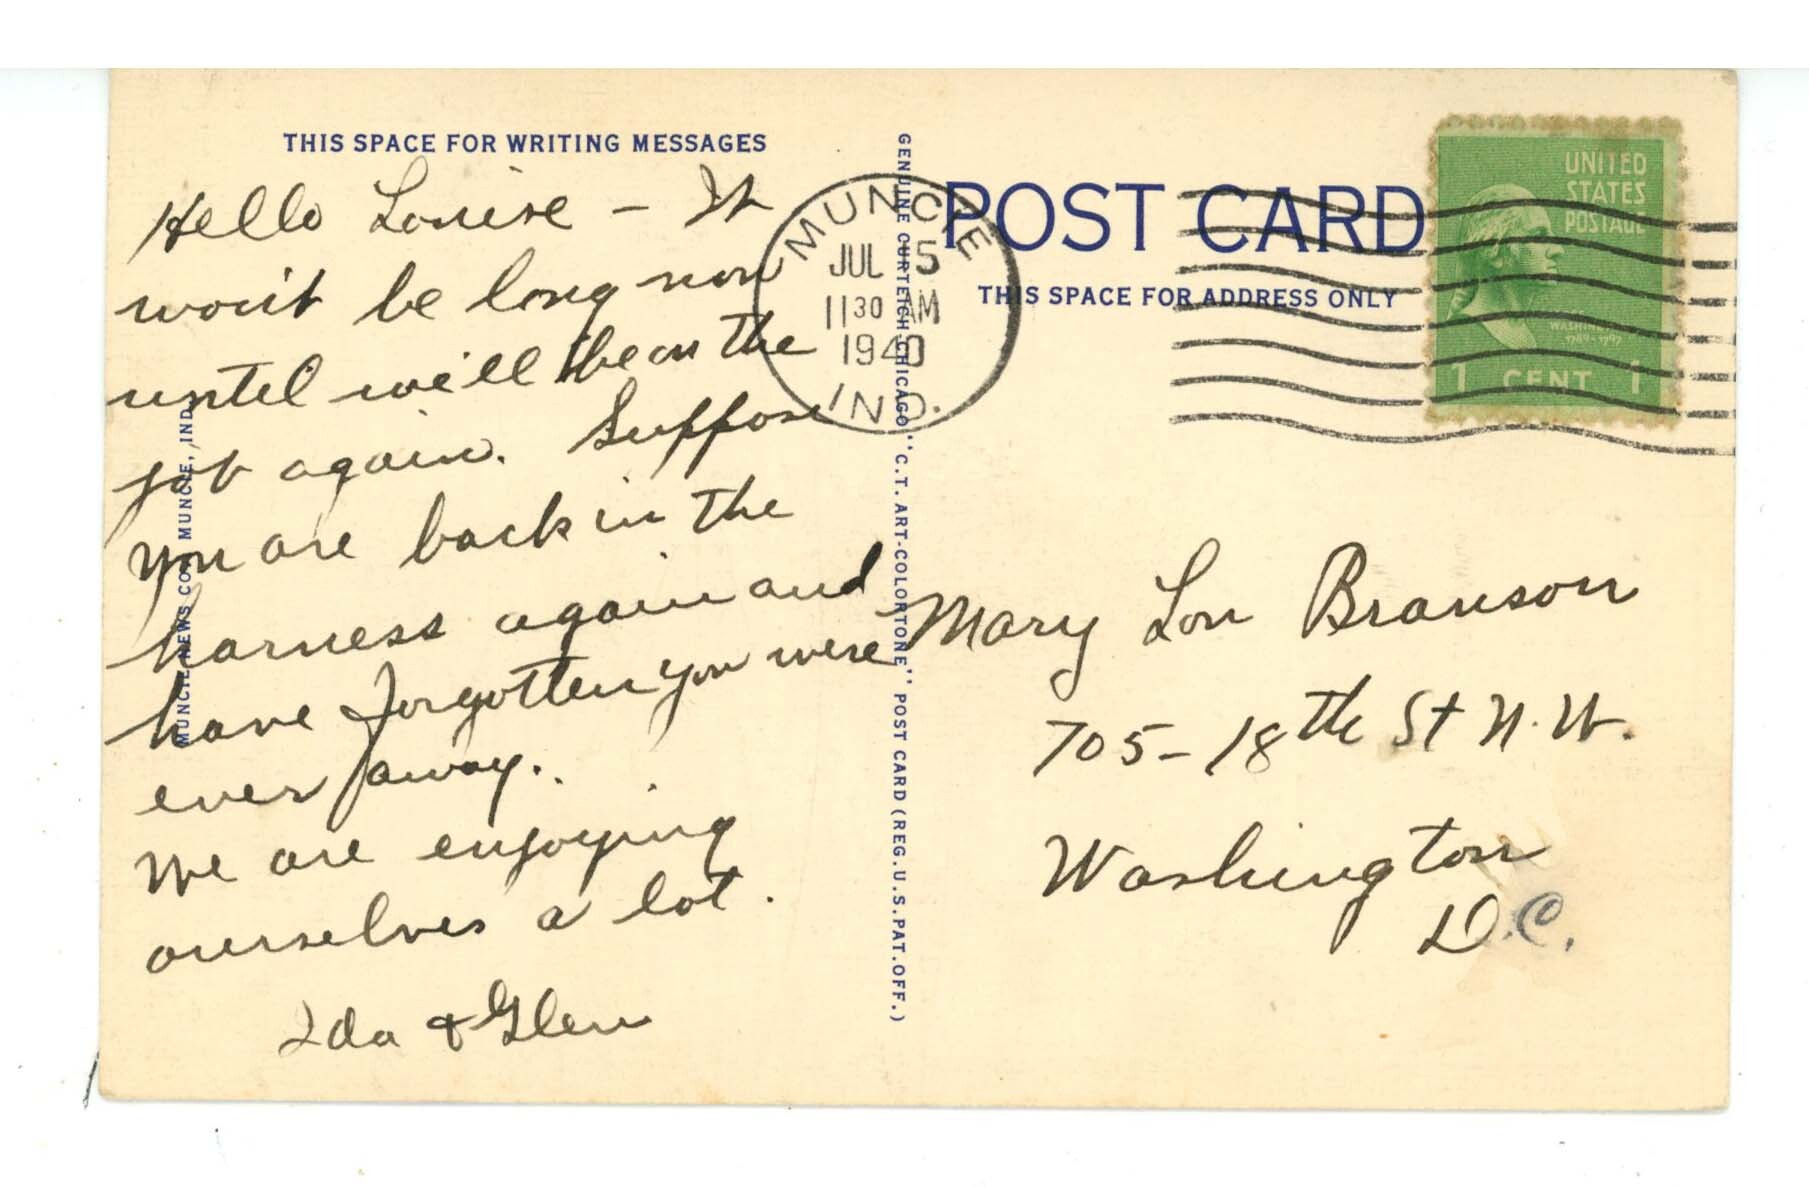 THIS SPACE FOR WRITING MESSAGES
Hello Louise – It
won't be long now
until we'll be on the
job again. Suppose
you are back in the
harness again and
have forgotten you were
ever away.
We are enjoying
ourselves a lot.
Ida & Glen
MUNCIE NEWS CO., MUNCIE, IND.
GENUINE CURTEICH-CHICAGO "C.T. ART-COLORTONE" POST CARD (REG. U.S. PAT. OFF.)
MUNCIE
JUL 5
11 30 AM
1940
IND.
POST CARD
THIS SPACE FOR ADDRESS ONLY
UNITED
STATES
POSTAGE
WASHINGTON
1789-1797
1 CENT 1
Mary Lou Branson
705-18th St N.W.
Washington
D.C.